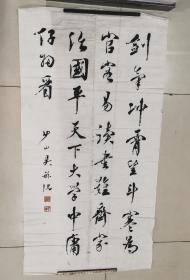 剑气冲霄望斗寒为
官容易读书难齐家
治国平天下大学中庸
仔细看